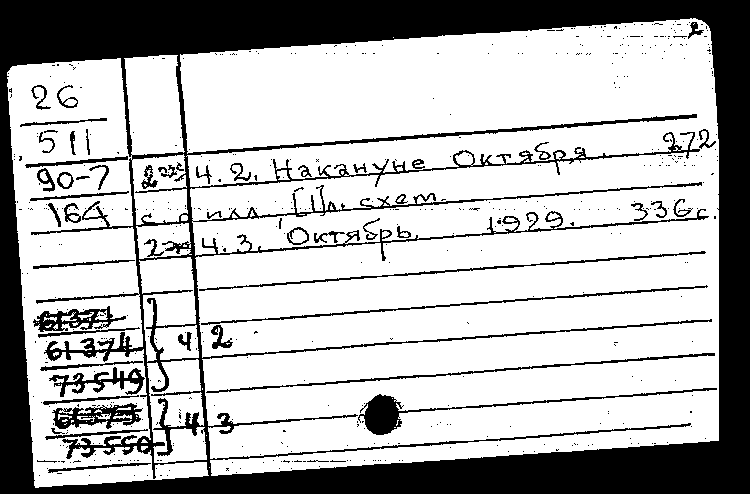 2
26
511
90-7 2 экз Ч.2. Накануне Октября. 272
164 с. с илл. [1]л. схем.
2 эк Ч.3. Октябрь. 1929. 336 с.
61371
61374 } Ч 2
73549
61373 } Ч. 3
73550